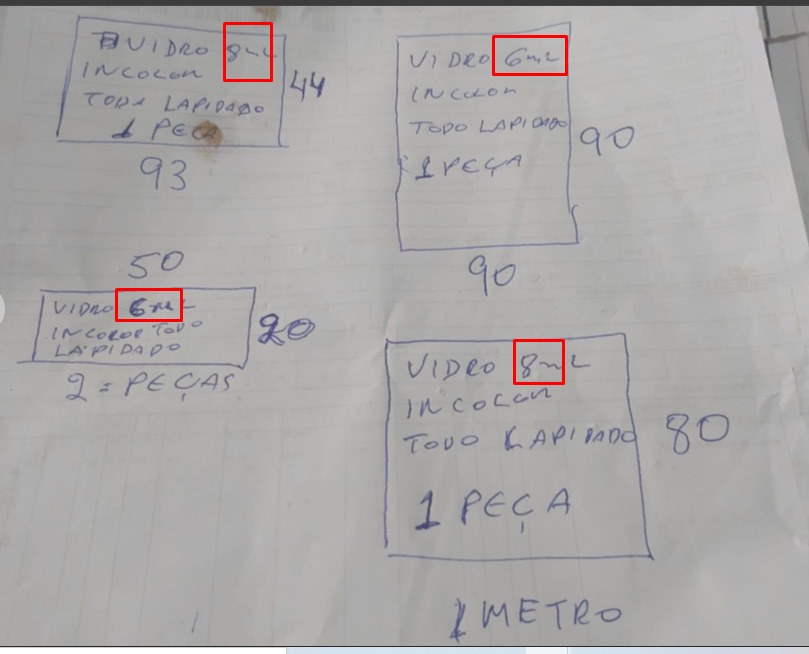 VIDRO 8mL
INCOLOR
TODA LAPIDADO
1 PEÇA
44
93
VIDRO 6mL
INCOLOR
TODO LAPIDADO
1 PEÇA
90
90
50
VIDRO 6mL
INCOLOR TODO
LAPIDADO
20
2 = PEÇAS
VIDRO 8mL
INCOLOR
TODO LAPIDADO
1 PEÇA
80
1 METRO